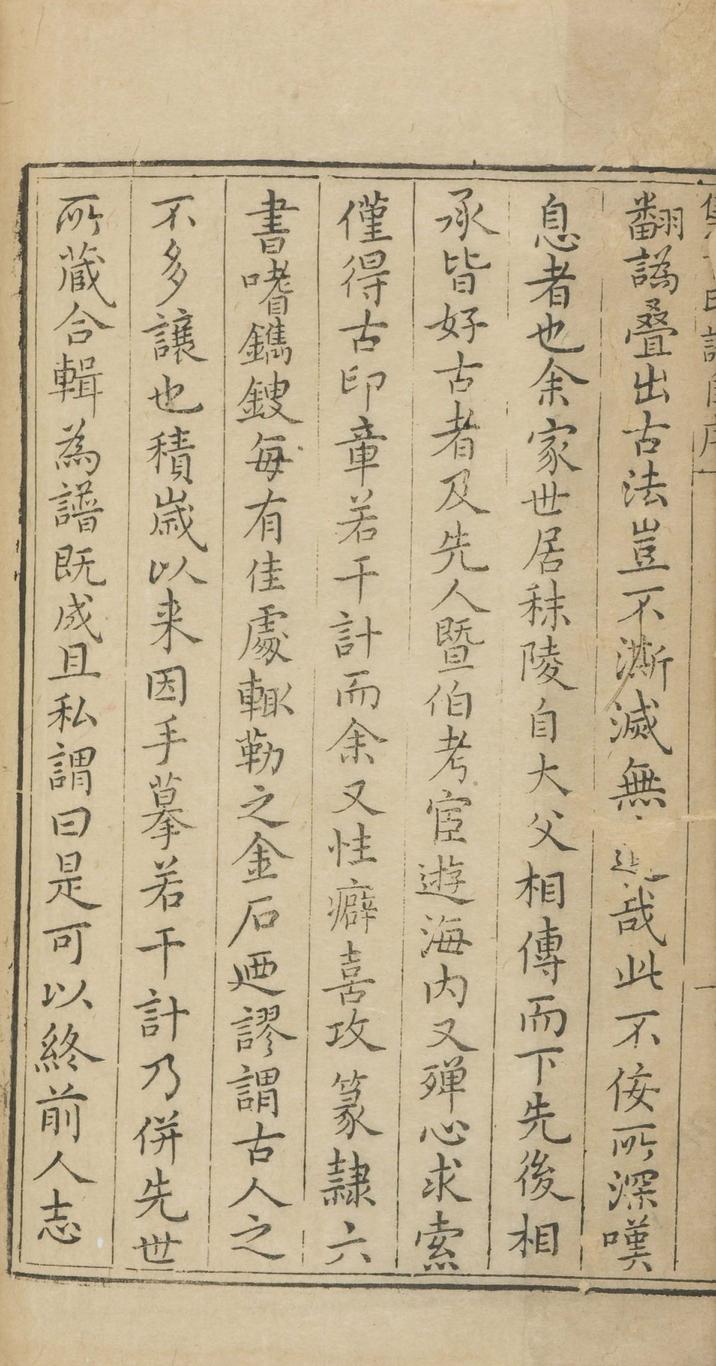 翻譌叠出古法豈不澌滅無遺哉此不佞所深嘆
息者也余家世居秣陵自大父相傳而下先後相
承皆好古者及先人暨伯考宦遊海内又殫心求索
僅得古印章若干計而余又性癖喜攻篆隸六
書嗜鐫鎪每有佳處輙勒之金石廼謬謂古人之
不多讓也積嵗以来因手摹若干計乃併先世
所蔵合輯為譜既成且私謂曰是可以終前人志